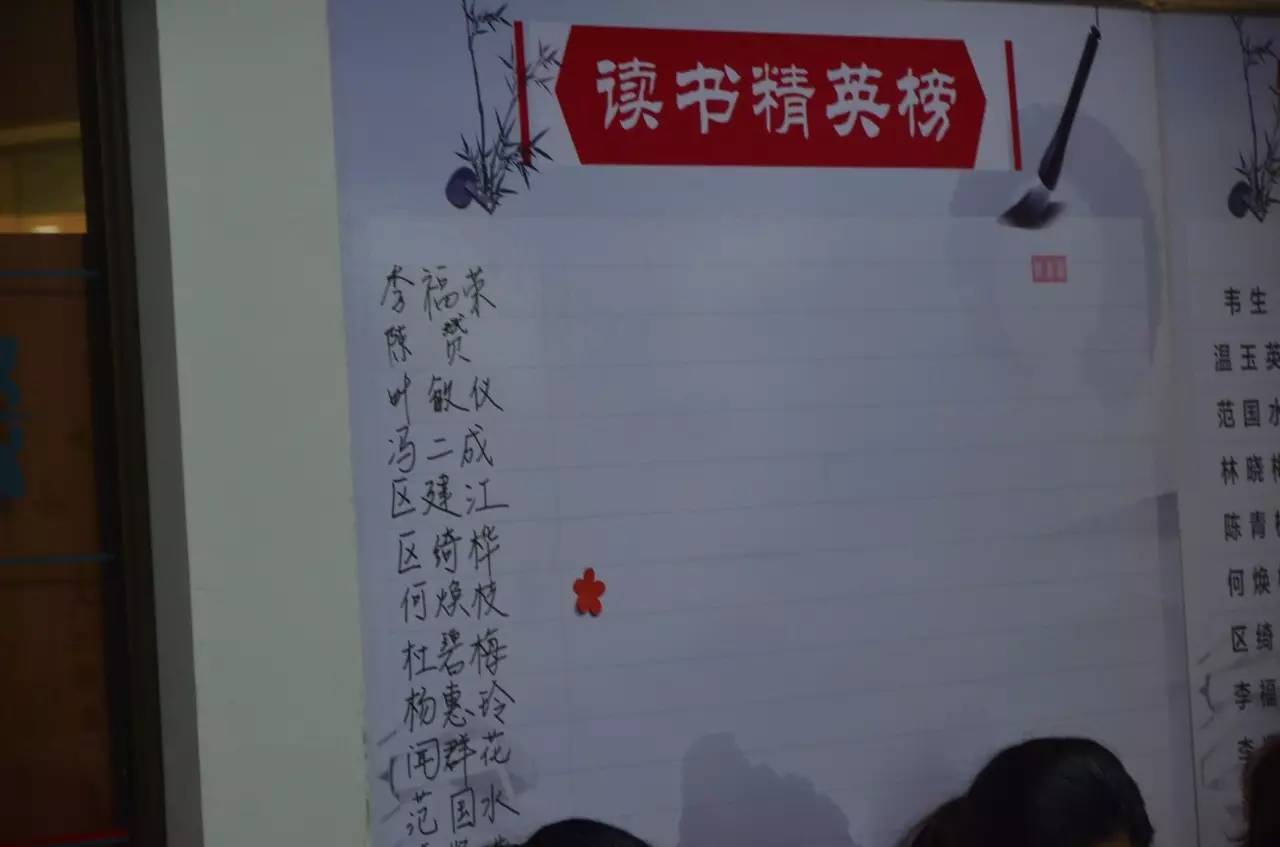 读书精英榜
李福荣
陈赟
叶敏仪
冯二成
区建江
区绮桦
何焕枝
杜碧梅
杨惠玲
闻群花
范国水
韦生
温玉英
范国水
林晓梅
陈青
何焕
区绮
李福
李